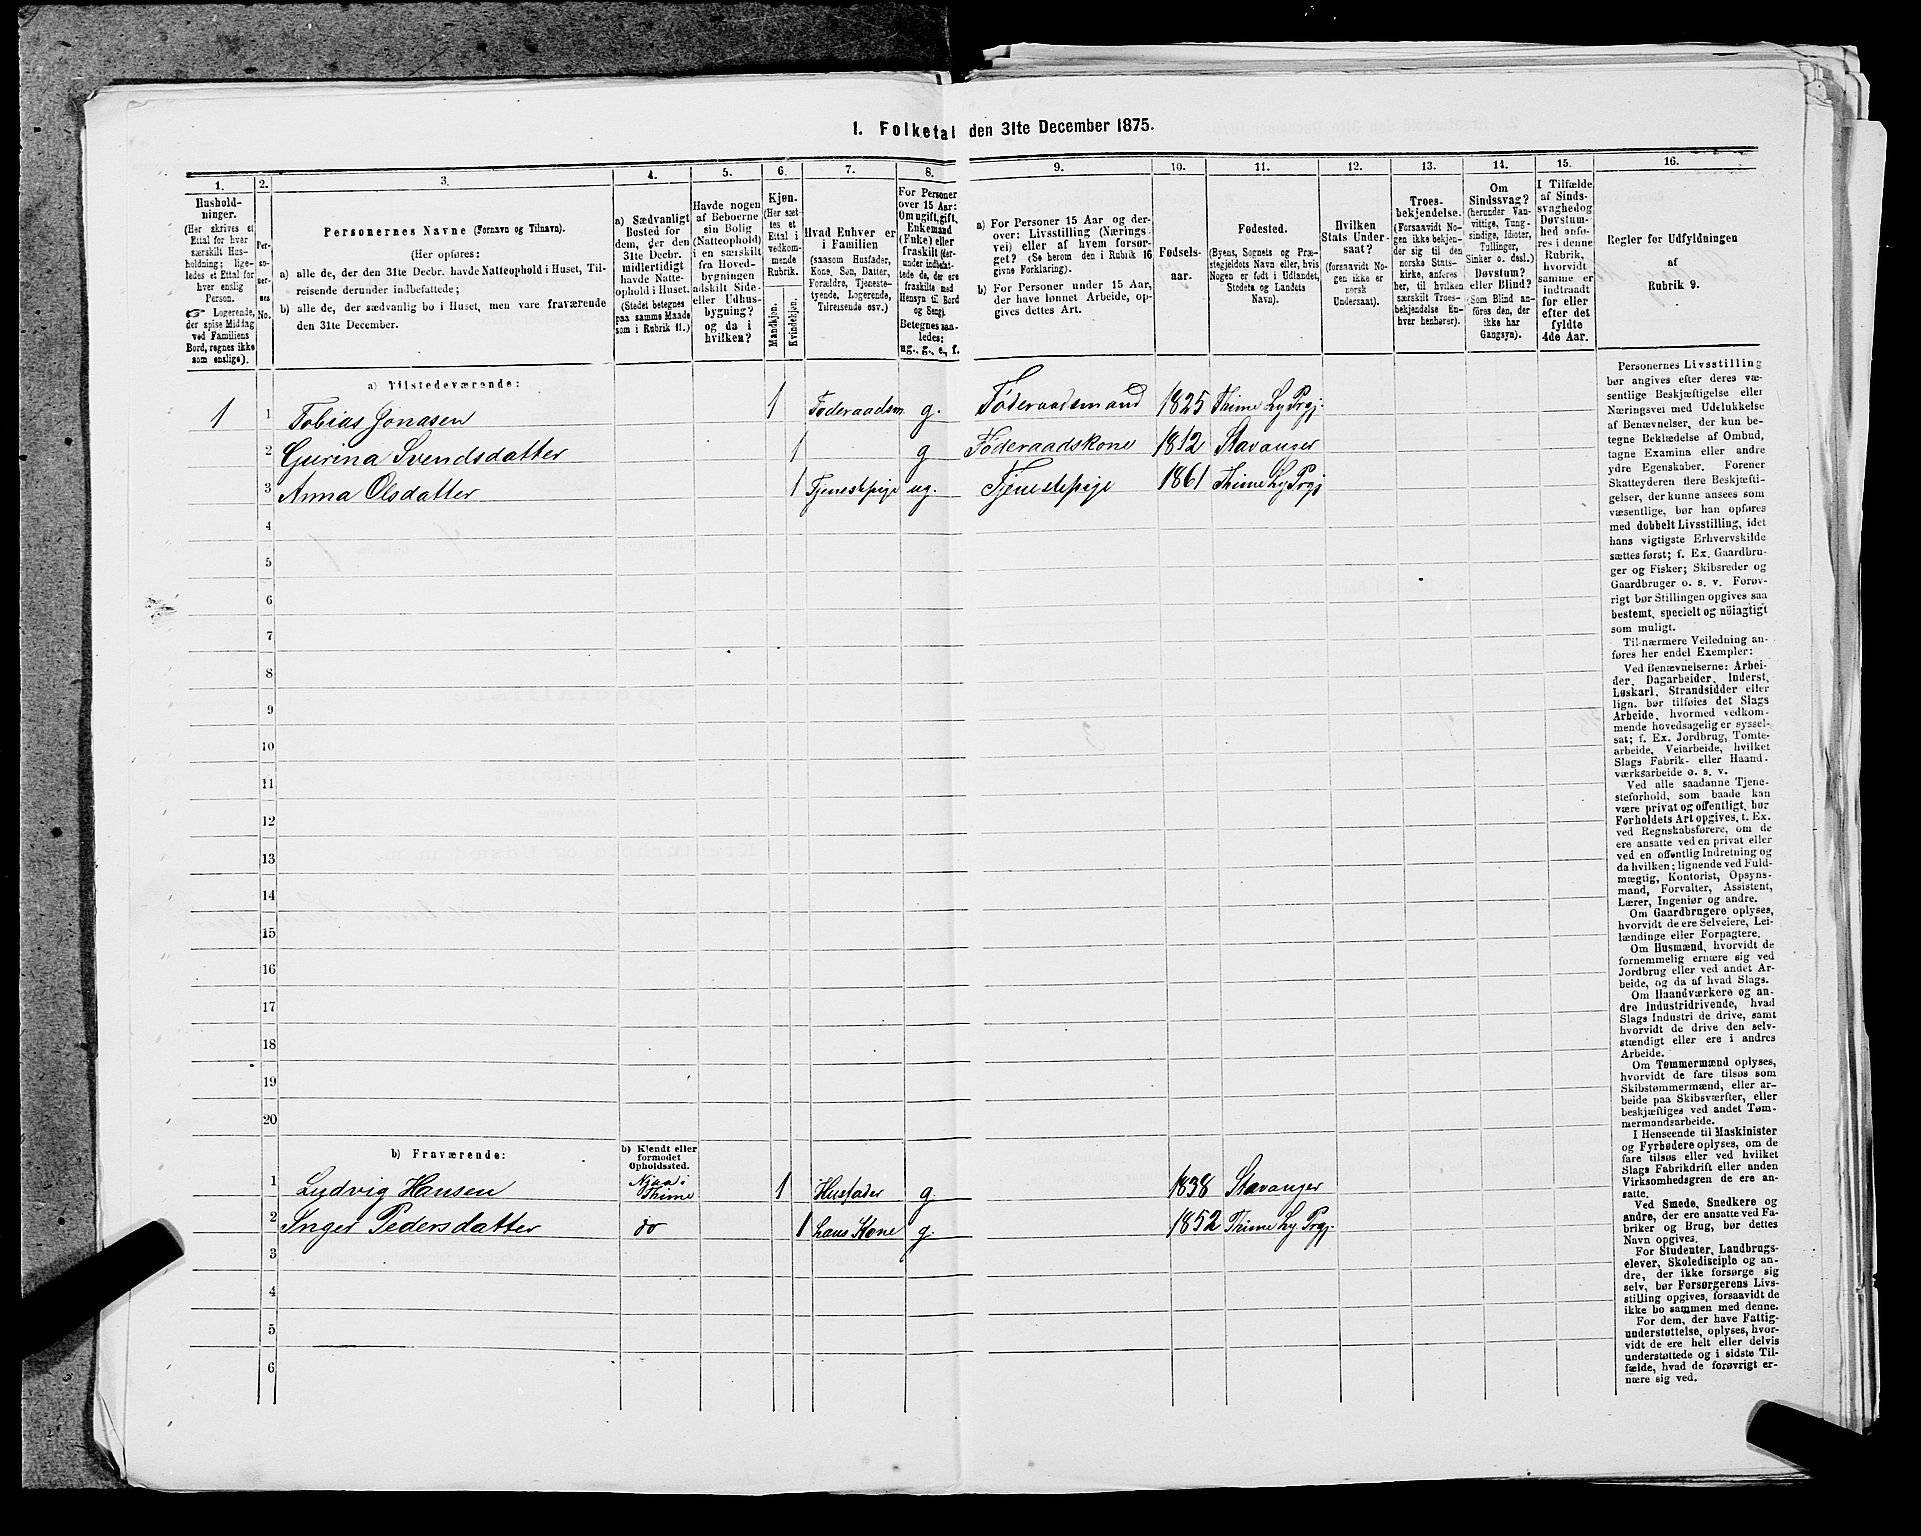 1. Folketal den 31te December 1875.
1.
2.
3.
4.
5.
6.
7.
8.
9.
10.
11.
12.
13.
14.
15.
16.
Hushold-
ninger.
(Her skrives et
Ettal for hver
særskilt Hus-
holdning; lige-
ledes et Ettal for
hver enslig
Person.
☞ Logerende,
der spise Middag
ved Familiens
Bord, regnes ikke
som enslige).
Per-
so-
ner-
nes
No.
Personernes Navne (Fornavn og Tilnavn).
(Her opføres:
a) alle de, der den 31te Decbr. havde Natteophold i Huset, Til-
reisende derunder indbefattede;
b) alle de, der sædvanlig bo i Huset, men vare fraværende
den 31te December.
a) Sædvanligt
Bosted for
dem, der den
31te Decbr.
midlertidigt
havde Natte-
ophold i Huset.
(Stedet betegnes
paa samme Maade
som i Rubrik 11.)
Havde nogen
af Beboerne
sin Bolig
(Natteophold)
i en særskilt
fra Hoved-
bygningen
adskilt Side-
eller Udhus-
bygning?
og da i
hvilken?
Kjøn.
(Her sæt-
tes et
Ettal i
vedkom-
mende
Rubrik.
Mandkjøn.
Kvindekjøn.
Hvad Enhver er
i Familien
(saasom Husfader,
Kone, Søn, Datter,
Forældre, Tjeneste-
tyende, Logerende,
Tilreisende osv.)
For Personer
over 15 Aar:
Om ugift, gift,
Enkemand
(Enke) eller
fraskilt (der-
under indbefat-
tede de, der ere
fraskilte med
Hensyn til Bord
og Seng).
Betegnes saa-
ledes:
ug., g., e., f.
a) For Personer 15 Aar og der-
over: Livsstilling (Nærings-
vei) eller af hvem forsør-
get? (Se herom den i Rubrik 16
givne Forklaring).
b) For Personer under 15 Aar,
der have lønnet Arbeide, op-
gives dettes Art.
Fødsels-
aar.
Fødested.
(Byens, Sognets og Præ-
stegjeldots Navn eller, hvis
Nogen er født i Udlandet,
Stedets og Landets
Navn).
Hvilken
Stats Under-
saat?
(forsaavidt No-
gen ikke er
norsk
Undersaat).
Troes-
bekjendelse.
(Forsaavidt No-
gen ikke bekjen-
der sig til den
norske Stats-
kirke, anføres
her, til hvilken
særskilt Troes-
bekjendelse En-
hver henhører).
Om
Sindssvag?
(herunder Van-
vittige, Tung-
sindige, Idioter,
Tullinger,
Sinker o. desl.)
Døvstum?
eller Blind?
(Som Blind an-
føres den, der
ikke har
Gangsyn).
I Tilfælde
af Sinds-
svaghed og
Døvstum-
hed anfø-
res i denne
Rubrik,
hvorvidt
samme er
indtraadt
før eller
efter det
fyldte
4de Aar.
Regler for Udfyldningen
af
Rubrik 9.
a) Tilstedeværende:
1 1 Tobias Jonasen 1 Føderaadsm. g. Føderaadsmand 1825 Thime Ly Prgj.
2 Gurina Svendsdatter 1 g Føderaadskone 1812 Stavanger
3 Anna Olsdatter 1 Tjenestepige ug. Tjenestepige 1861 Thime Ly Prgj
4
5
6
7
8
9
10
11
12
13
14
15
16
17
18
19
20
b) Fraværende:
b) Kjendt eller
formodet
Opholdssted.
1 Ludvig Hansen Njaa i Thime 1 Husfader g. 1838 Stavanger
2 Inger Pedersdatter do 1 hans Kone g. 1852 Thime Ly. Prgj.
3
4
5
6
Personernes Livsstilling
bør angives efter deres væ-
sentlige Beskjæftigelse eller
Næringsvei med Udelukkelse
af Benævnelser, der kun be-
tegne Beklædelse af Ombud,
tagne Examina eller andre
ydre Egenskaber. Forener
Skatteyderen flere Beskjæfti-
gelser, der kunne ansees som
væsentlige, bør han opføres
med dobbelt Livsstilling, idet
hans vigtigste Erhvervskilde
sættes først; f. Ex. Gaardbru-
ger og Fisker; Skibsreder og
Gaardbruger o. s. v. Forøv-
rigt bør Stillingen opgives saa
bestemt, specielt og nöiagtigt
som muligt.
Til nærmere Veiledning an-
føres her endel Exempler:
Ved Benævnelserne: Arbei-
der, Dagarbeider, Inderst,
Løskarl, Strandsidder eller
lign. bør tilføies det Slags
Arbeide, hvormed vedkom-
mende hovedsagelig er syssel-
sat; f. Ex. Jordbrug, Tomte-
arbeide, Veiarbeide, hvilket
Slags Fabrik- eller Haand-
værksarbeide o. s. v.
Ved alle saadanne Tjene-
steforhold, som baade kan
være privat og offentligt, bør
Forholdets Art opgives, t. Ex.
ved Regnskabsførere, om de
ere ansatte ved en privat eller
ved en offentlig Indretning og
da hvilken; lignende ved Fuld-
mægtig, Kontorist, Opsyns-
mand, Forvalter, Assistent,
Lærer, Ingeniør og andre.
Om Gaardbrugere oplyses,
hvorvidt de ere Selveiere, Lei-
lændinge eller Forpagtere.
Om Husmænd, hvorvidt de
fornemmelig ernære sig ved
Jordbrug eller ved andet Ar-
beide, og da af hvad Slags.
Om Haandværkere og an-
dre Industridrivende, hvad
Slags Industri de drive, samt
hvorvidt de drive den selv-
stændigt eller ere i andres
Arbeide.
Om Tømmermænd oplyses,
hvorvidt de fare tilsøs som
Skibstømmermænd, eller ar-
beide paa Skibsværfter, eller
beskjæftiges ved andet Tøm-
mermandsarbeide.
I Henseende til Maskinister
og Fyrbødere oplyses, om de
fare tilsøs eller ved hvilket
Slags Fabrikdrift eller anden
Virksomhedsgren de ere an-
satte.
Ved Smede, Snedkere og
andre, der ere ansatte ved Fa-
briker og Brug, bør dettes
Navn opgives.
For Studenter, Landbrugs-
elever, Skoledisciple og an-
dre, der ikke forsørge sig
selv, bør Forsørgerens Livs-
stilling opgives, forsaavidt de
ikke bo sammen med denne.
For dem, der have Fattig-
understøttelse, oplyses, hvor-
vidt de ere helt eller delvis
understøttede og i sidste Til-
fælde, hvad de forøvrigt er-
nære sig ved.